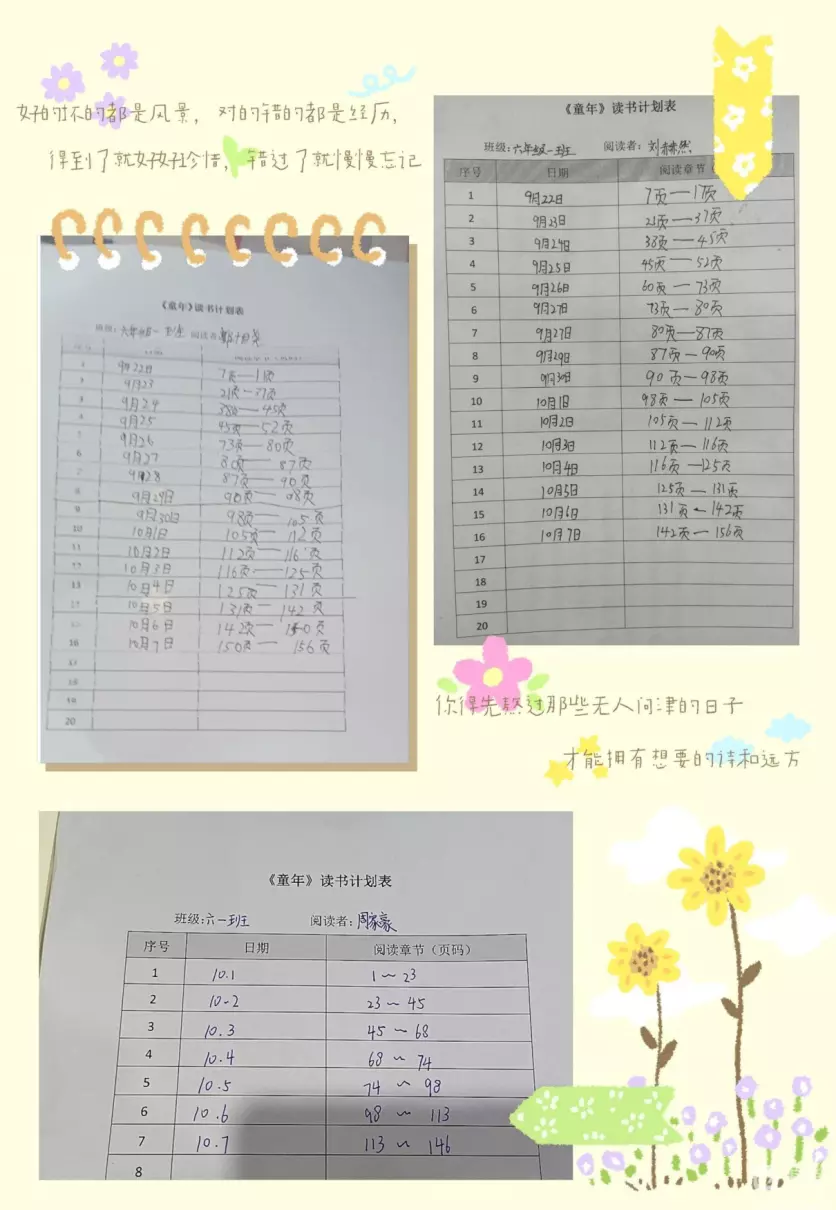 好的坏的都是风景，对的错的都是经历，
得到了就好好珍惜，错过了就慢慢忘记
《童年》读书计划表
班级:六年级一班 阅读者:
序号 日期 阅读章节
1 9月22日 7页—17页
2 9月23日 21页—37页
3 9月24日 38页—45页
4 9月25日 45页—52页
5 9月26日 60页—73页
6 9月27日 73页—80页
7 9月27日 80页—87页
8 9月29日 87页—90页
9 9月30日 90页—98页
10 10月1日 98页—105页
11 10月2日 105页—112页
12 10月3日 112页—116页
13 10月4日 116页—125页
14 10月5日 125页—131页
15 10月6日 131页—142页
16 10月7日 142页—156页
17
18
19
20
《童年》读书计划表
班级:六年级一班 阅读者
9月22日 7页—11页
9月23 21页—37页
9月24 38页—45页
9月25 45页—52页
9月26 73页—80页
9月27 80页—87页
9月28 87页—90页
9月29日 90页—98页
9月30日 98页—105页
10 10月1日 105页—112页
11 10月2日 112页—116页
12 10月3日 116页—125页
13 10月4日 125页—131页
10月5日 131页—142页
10月6日 142页—150页
16 10月7日 150页—156页
17
18
19
20
你得先熬过那些无人问津的日子
才能拥有想要的诗和远方
《童年》读书计划表
班级:六一班 阅读者:周家豪
序号 日期 阅读章节（页码）
1 10.1 1~23
2 10-2 23~45
3 10.3 45~68
4 10.4 68~74
5 10.5 74~98
6 10.6 98~113
7 10.7 113~146
8